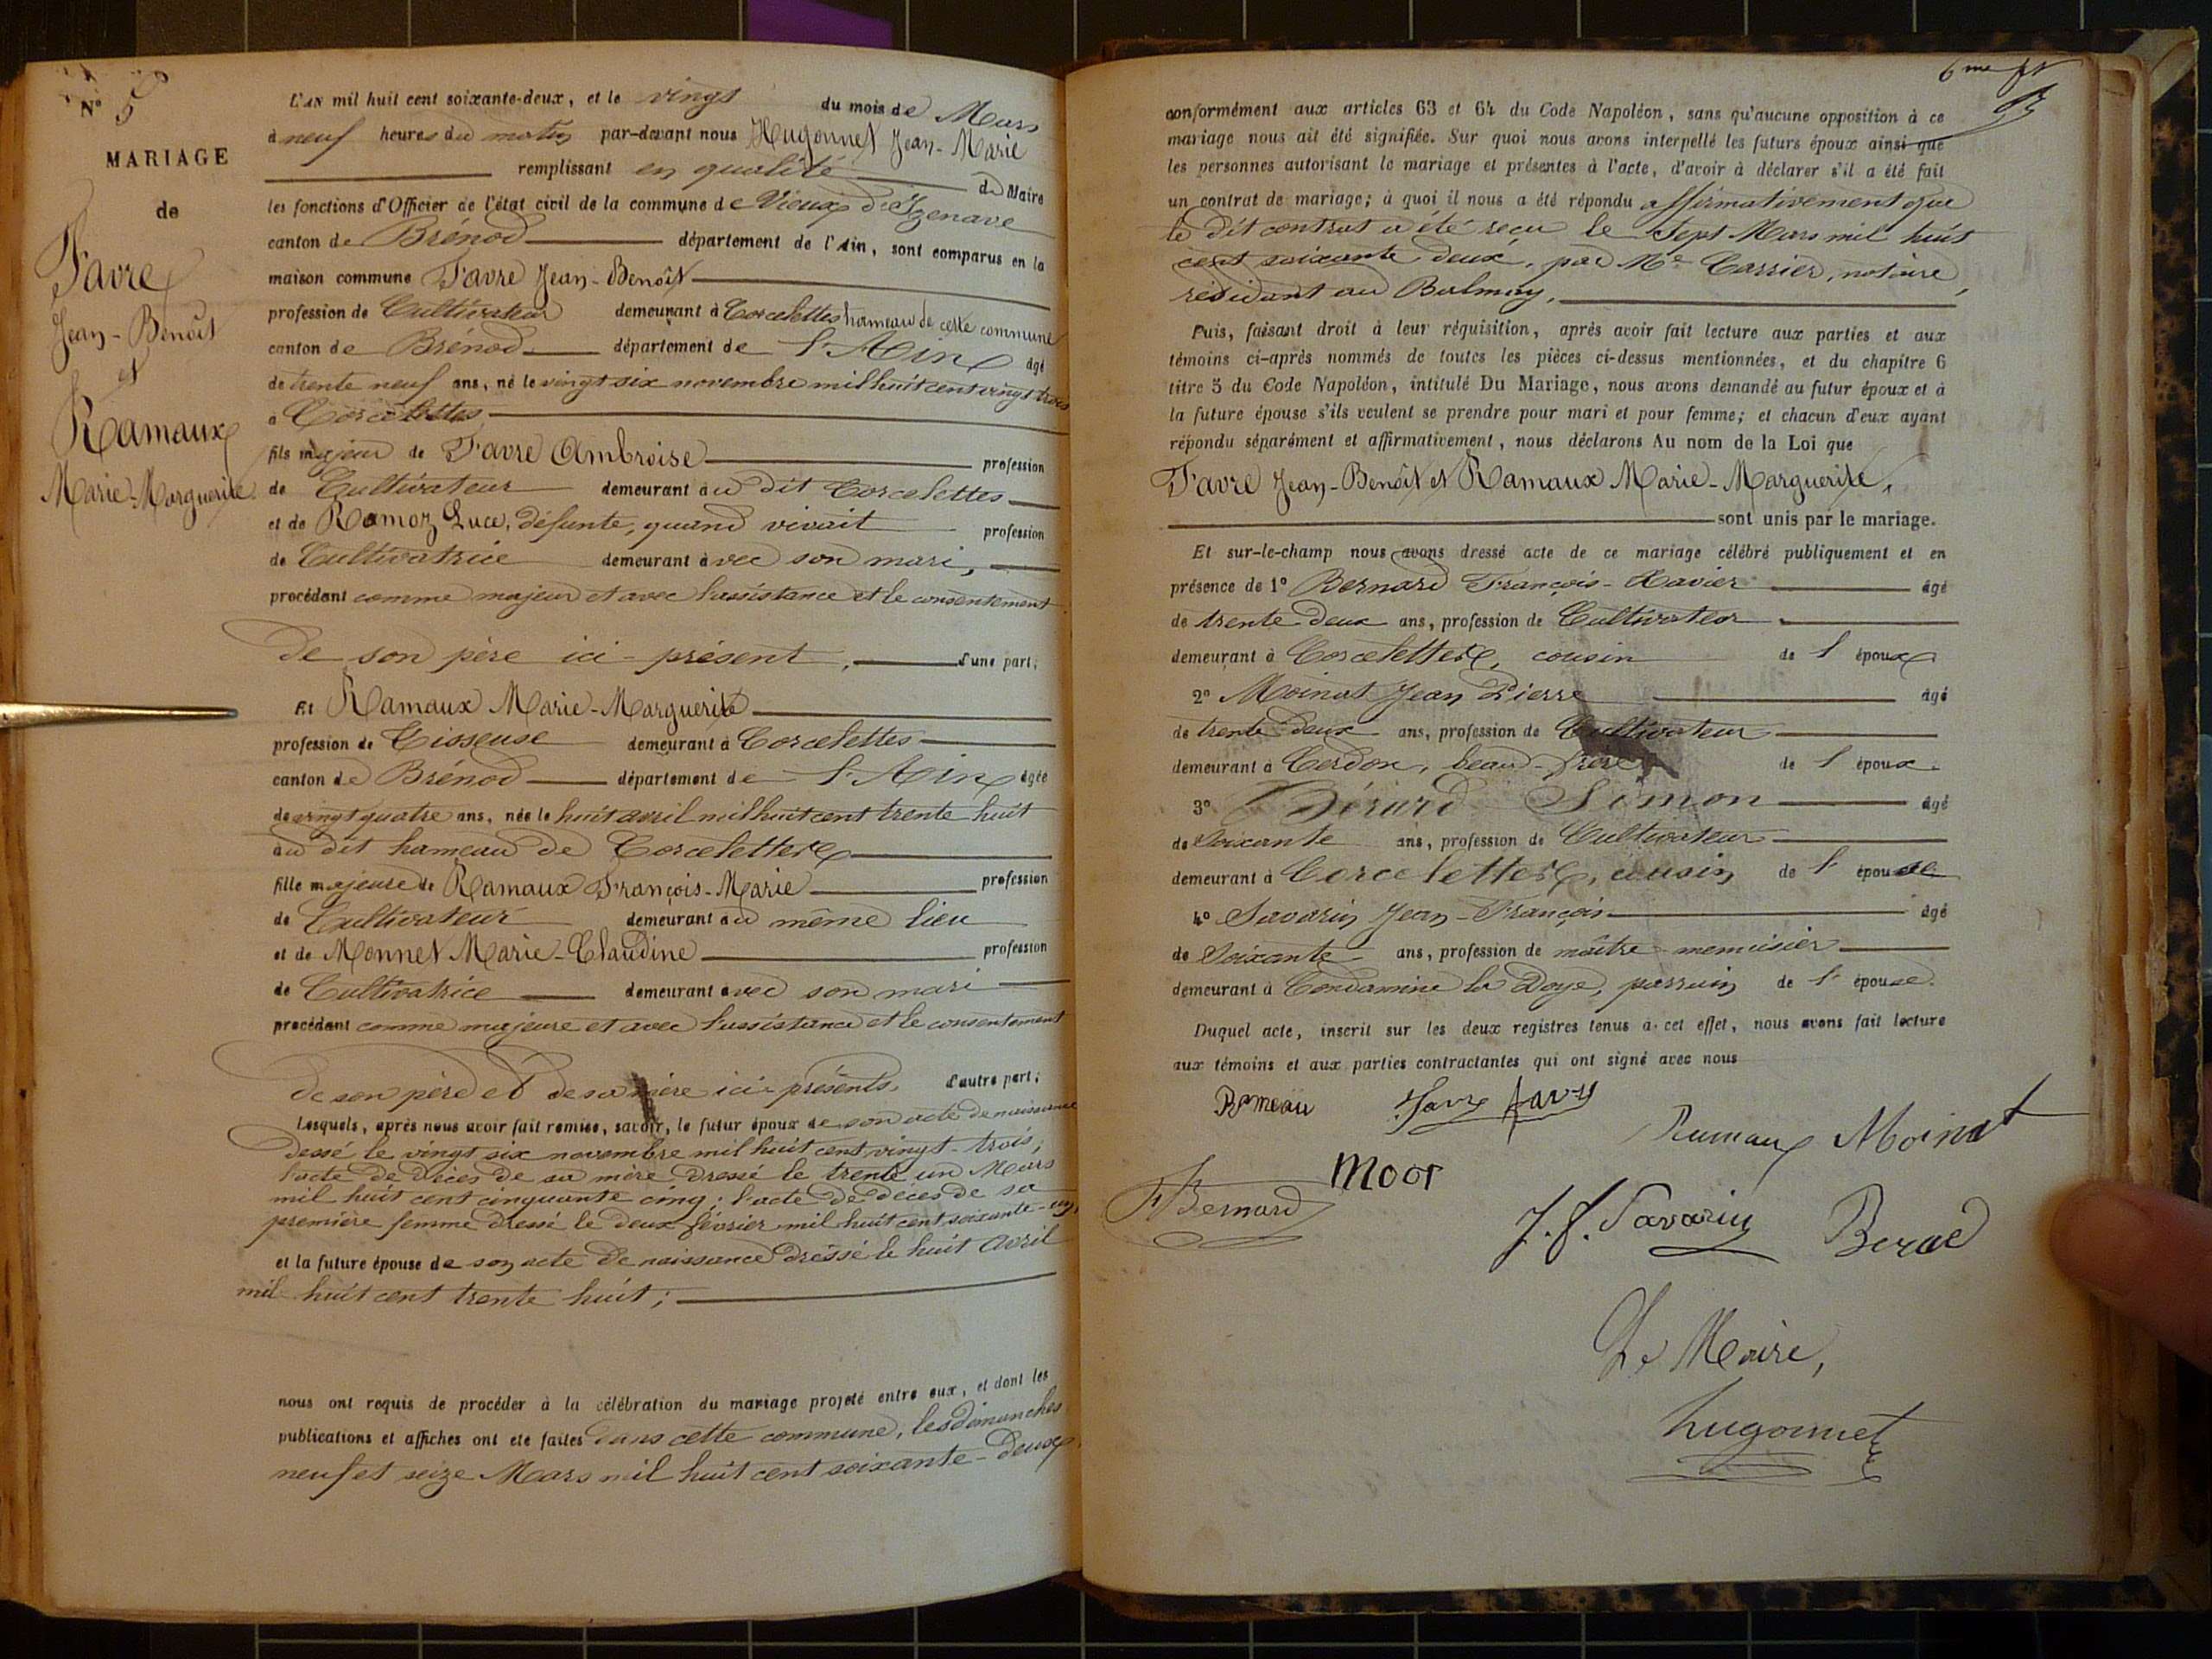 N° 5
MARIAGE
de
Favre
Jean-Benoît
et
Ramaux
Marie-Marguerite
L'AN mil huit cent soixante-deux, et le vingt du mois de Mars
à neuf heures du matin par-devant nous Hugonnet Jean-Marie
remplissant en qualité de Maire
les fonctions d'Officier de l'état civil de la commune de Vieux d'Izenave
canton de Brénod département de l'Ain, sont comparus en la
maison commune Favre Jean-Benoît
profession de Cultivateur demeurant à Corcelettes hameau de cette commune
canton de Brénod département de l'Ain âgé
de trente neuf ans, né le vingt six novembre mil huit cent vingt trois
à Corcelettes
fils majeur de Favre Ambroise profession
de Cultivateur demeurant au dit Corcelettes
et de Ramoz Luce, défunte, quand vivait profession
de Cultivatrice demeurant avec son mari,
procédant comme majeur et avec l'assistance et le consentement
de son père ici-présent, d'une part;
Et Ramaux Marie-Marguerite
profession de Tisseuse demeurant à Corcelettes
canton de Brénod département de l'Ain âgée
de vingt quatre ans, née le huit avril mil huit cent trente huit
au dit hameau de Corcelettes
fille majeure de Ramaux François-Marie profession
de Cultivateur demeurant au même lieu
et de Monnet Marie-Claudine profession
de Cultivatrice demeurant avec son mari
procédant comme majeure et avec l'assistance et le consentement
de son père et de sa mère ici-présents, d'autre part;
Lesquels, après nous avoir fait remise, savoir, le futur époux de son acte de naissance
dessé le vingt six novembre mil huit cent vingt-trois;
l'acte de décès de sa mère dressé le trente un Mars
mil huit cent cinquante cinq; l'acte de décès de sa
première femme dressé le deux février mil huit cent soixante-un,
et la future épouse de son acte de naissance dressé le huit avril
mil huit cent trente huit;
nous ont requis de procéder à la célébration du mariage projeté entre eux, et dont les
publications et affiches ont été faites dans cette commune, les dimanches
neuf et seize Mars mil huit cent soixante-deux
6me
conformément aux articles 63 et 64 du Code Napoléon, sans qu'aucune opposition à ce
mariage nous ait été signifiée. Sur quoi nous avons interpellé les futurs époux ainsi que
les personnes autorisant le mariage et présentes à l'acte, d'avoir à déclarer s'il a été fait
un contrat de mariage; à quoi il nous a été répondu affirmativement que
le dit contrat a été reçu le Sept Mars mil huit
cent soixante deux, par Me Carrier, notaire,
résidant au Balmay,
Puis, faisant droit à leur réquisition, après avoir fait lecture aux parties et aux
témoins ci-après nommés de toutes les pièces ci-dessus mentionnées, et du chapitre 6
titre 5 du Code Napoléon, intitulé Du Mariage, nous avons demandé au futur époux et à
la future épouse s'ils veulent se prendre pour mari et pour femme; et chacun d'eux ayant
répondu séparément et affirmativement, nous déclarons Au nom de la Loi que
Favre Jean-Benoît et Ramaux Marie-Marguerite,
sont unis par le mariage.
Et sur-le-champ nous avons dressé acte de ce mariage célébré publiquement et en
présence de 1° Bernard François-Xavier âgé
de trente deux ans, profession de Cultivateur
demeurant à Corcelettes, cousin de l'époux
2° Moinat Jean Pierre âgé
de trente deux ans, profession de Cultivateur
demeurant à Cerdon, beau-frère de l'époux.
3° Bérard Simon âgé
de Soixante ans, profession de Cultivateur
demeurant à Corcelettes, cousin de l'épouse
4° Savarin Jean-François âgé
de Soixante ans, profession de maître menuisier
demeurant à Condamine la Doye, parrain de l'épouse.
Duquel acte, inscrit sur les deux registres tenus à cet effet, nous avons fait lecture
aux témoins et aux parties contractantes qui ont signé avec nous
Rameau Favre favre
Ramaux Moinat
Moor
F Bernard
J. f. Savarin Berad
Le Maire,
hugonnet